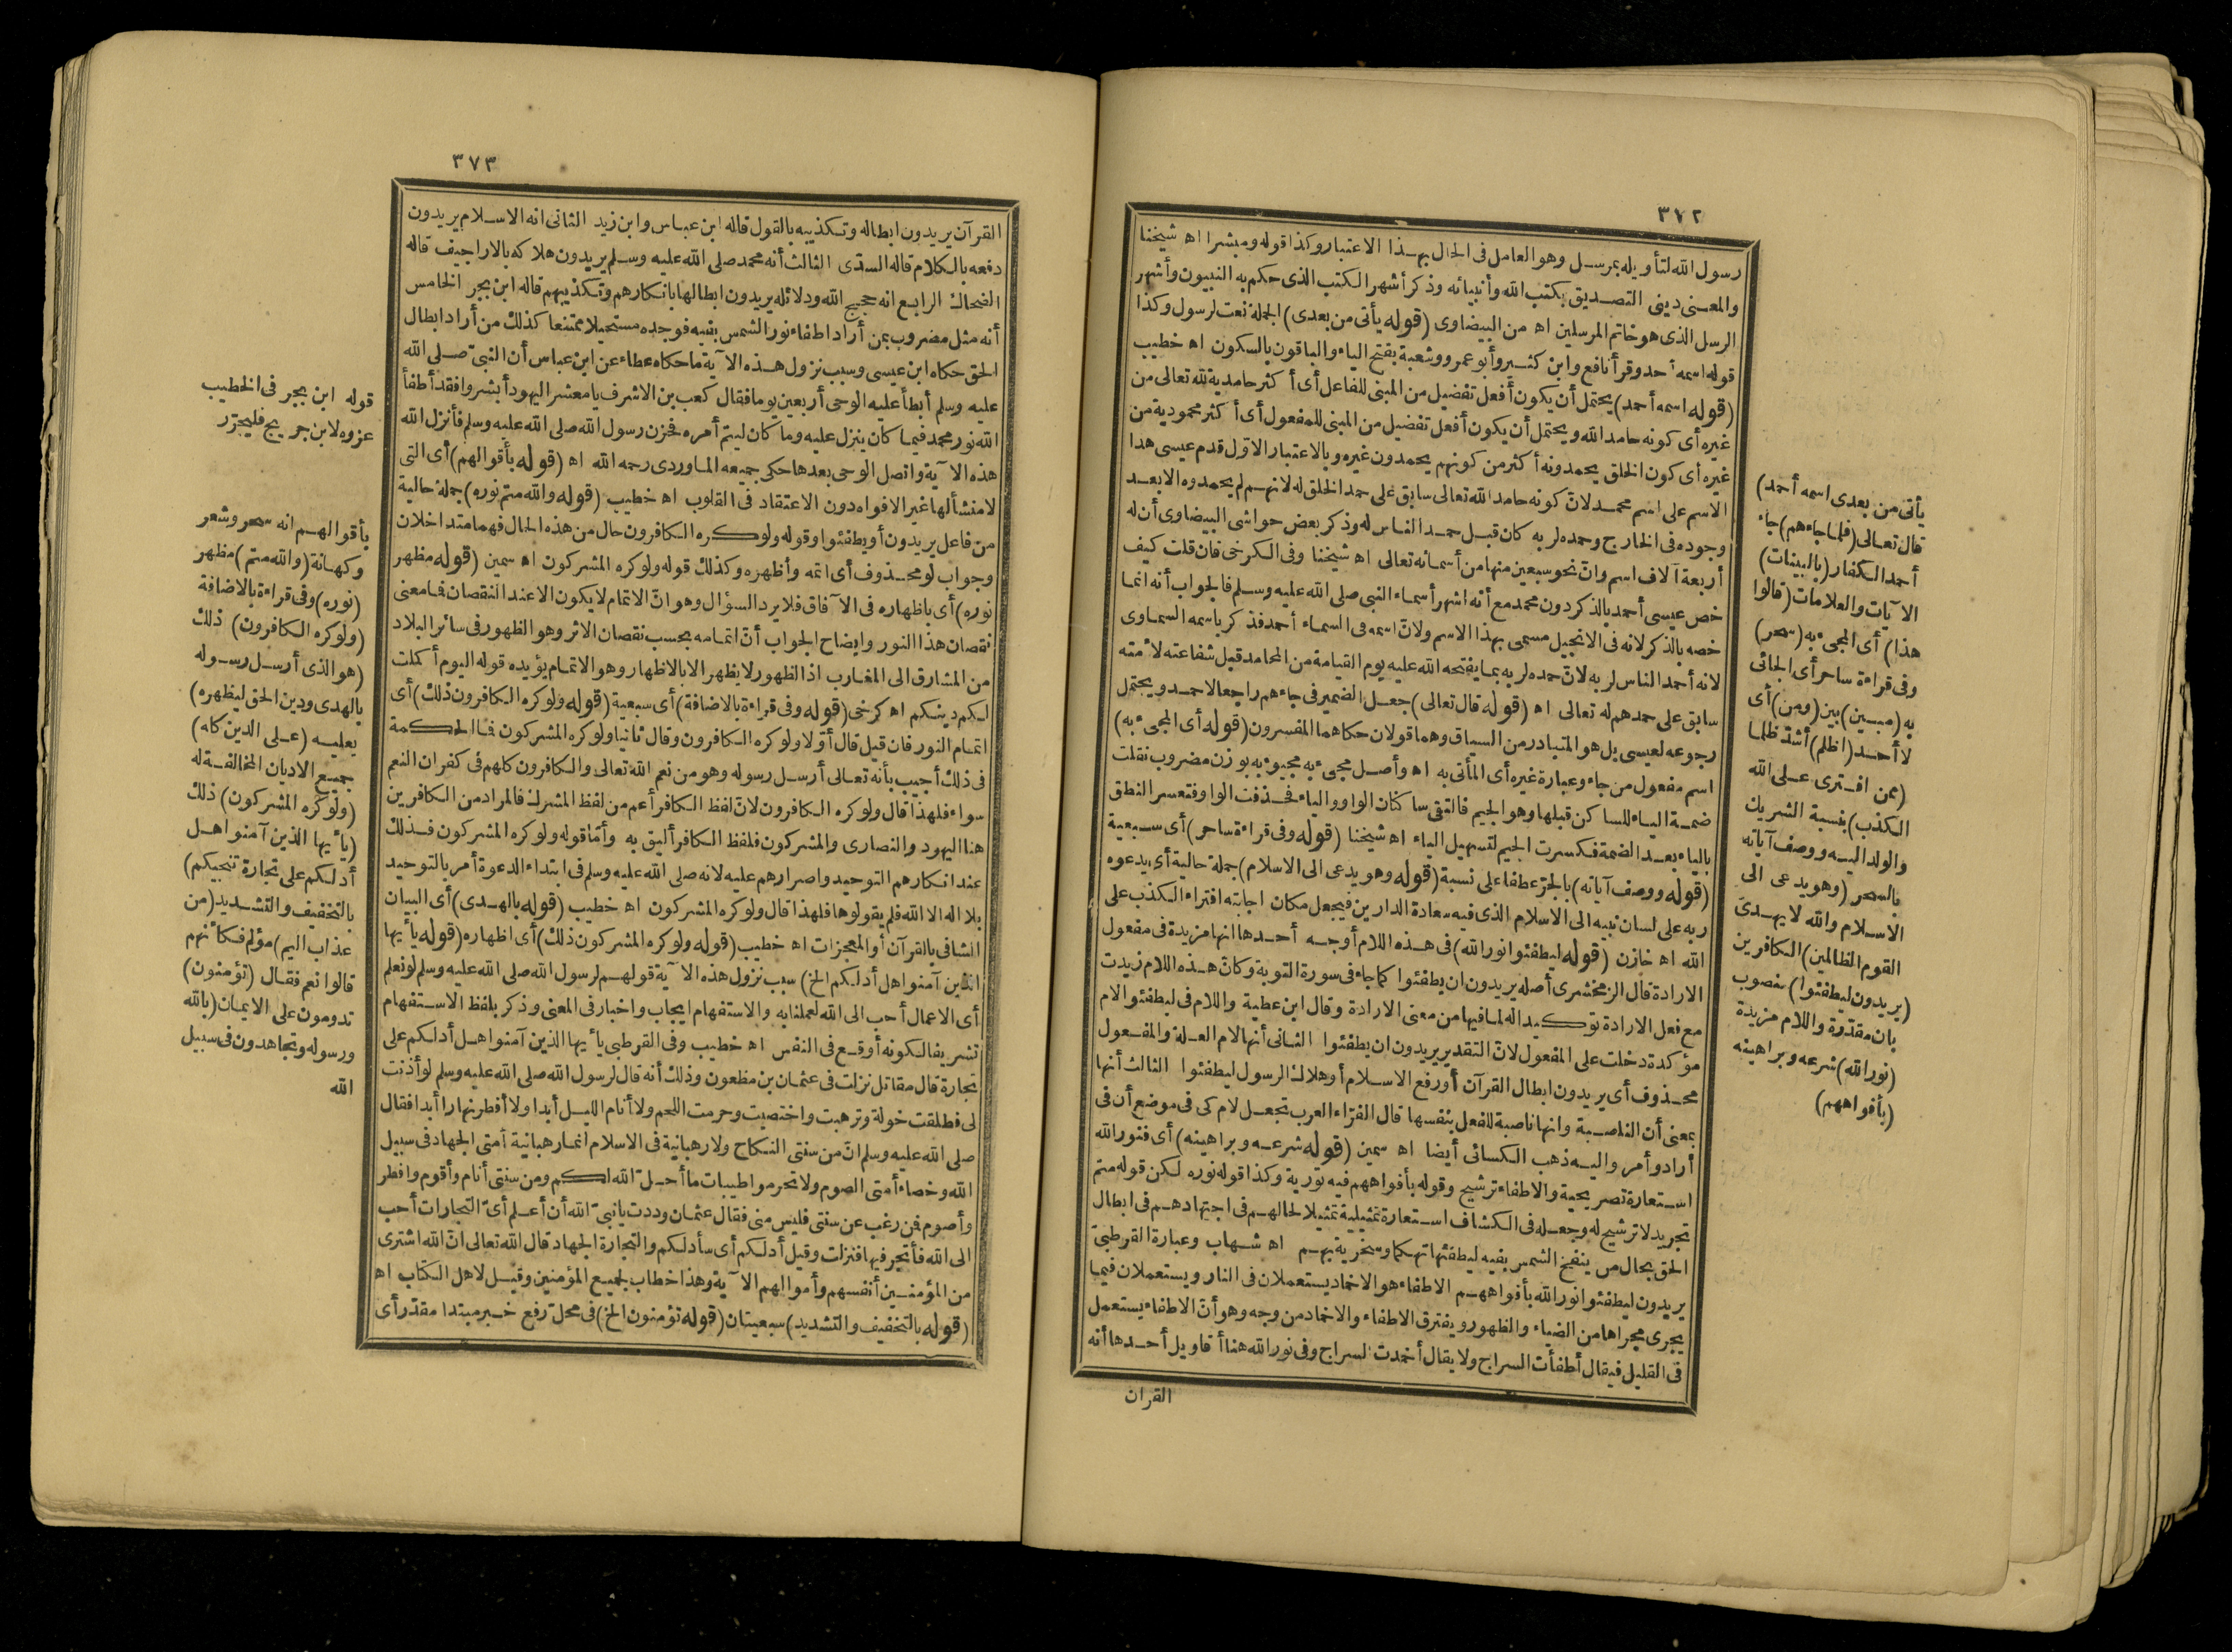 ٣٧٢
رسول الله لتأويله بمرسل وهو العامل فى الحال بهذا الاعتبار وكذا قوله ومبشرا اه شيخنا
والمعنى دينى التصديق بكتب الله وأنبيائه وذكر أشهر الكتب الذى حكم به النبيون وأشهر
الرسل الذى هو خاتم المرسلين اه من البيضاوى (قوله يأتى من بعدى) الجملة نعت لرسول وكذا
قوله اسمه أحمد وقرأ نافع وابن كثير وأبو عمرو وشعبة بفتح الياء والباقون بالسكون اه خطيب
(قوله اسمه أحمد) يحتمل أن يكون أفعل تفضيل من المبنى للفاعل أى أكثر حامدية لله تعالى من
غيره أى كونه حامد الله ويحتمل أن يكون أفعل تفضيل من المبنى للمفعول أى أكثر محمودية من
غيره أى كون الخلق يحمدونه أكثر من كونهم يحمدون غيره وبالاعتبار الاول قدم عيسى هذا
الاسم على اسم محمد لان كونه حامد الله تعالى سابق على حمد الخلق له لانهم لم يحمدوه الا بعد
وجوده فى الخارج وحمده لربه كان قبل حمد الناس له وذكر بعض حواشى البيضاوى أن له
أربعة آلاف اسم وان نحو سبعين منها من أسمائه تعالى اه شيخنا وفى الكرخى فان قلت كيف
خص عيسى أحمد بالذكر دون محمد مع أنه اشهر أسماء النبى صلى الله عليه وسلم فالجواب أنه انما
خصه بالذكر لانه فى الانجيل مسمى بهذا الاسم ولان اسمه فى السماء أحمد فذكر باسمه السماوى
لانه أحمد الناس لربه لان حمده لربه بما يفتحه الله عليه يوم القيامة من المحامد قبل شفاعته لأمته
سابق على حمدهم له تعالى اه (قوله قال تعالى) جعل الضمير فى جاءهم راجعا لاحمد ويحتمل
رجوعه لعيسى بل هو المتبادر من السياق وهما قولان حكاهما المفسرون (قوله أى المجىء به)
اسم مفعول من جاء وعبارة غيره أى المأتى به اه وأصل مجىء به مجيوء به بوزن مضروب نقلت
ضمة الياء للساكن قبلها وهو الجيم فالتقى ساكنان الواو والياء فحذفت الواو فتعسر النطق
بالياء بعد الضمة فكسرت الجيم لتسهيل الياء اه شيخنا (قوله وفى قراءة ساحر) أى سبعية
(قوله ووصف آياته) بالجر عطفا على نسبة (قوله وهو يدعى الى الاسلام) جملة حالية أى يدعوه
ربه على لسان نبيه الى الاسلام الذى فيه سعادة الدارين فيجعل مكان اجابته افتراء الكذب على
الله اه خازن (قوله ليطفئوا نور الله) فى هذه اللام أوجه أحدها انها مزيدة فى مفعول
الارادة قال الزمخشرى أصله يريدون ان يطفئوا كما جاء فى سورة التوبة وكان هذه اللام زيدت
مع فعل الارادة توكيدا له لما فيها من معنى الارادة وقال ابن عطية واللام فى ليطفئوا لام
مؤكدة دخلت على المفعول لان التقدير يريدون ان يطفئوا الثانى أنها لام العلة والمفعول
محذوف أى يريدون ابطال القرآن أو رفع الاسلام أو هلاك الرسول ليطفئوا الثالث أنها
بمعنى أن الناصبة وانها ناصبة للفعل بنفسها قال الفراء العرب تجعل لام كى فى موضع أن فى
أراد وأمر واليه ذهب الكسائى أيضا اه سمين (قوله شرعه وبراهينه) أى فنور الله
استعارة تصريحية والاطفاء ترشيح وقوله بأفواههم فيه تورية وكذا قوله نوره لكن قوله متم
تجريد لا ترشيح له وجعله فى الكشاف استعارة تمثيلية تمثيلا لحالهم فى اجتهادهم فى ابطال
الحق بحال من ينفخ الشمس بفيه ليطفئها تهكما وسخرية بهم اه شهاب وعبارة القرطبى
يريدون ليطفئوا نور الله بأفواههم الاطفاء هو الاخماد يستعملان فى النار ويستعملان فيما
يجرى مجراها من الضياء والظهور ويفترق الاطفاء والاخماد من وجه وهو أن الاطفاء يستعمل
فى القليل فيقال أطفأت السراج ولا يقال أخمدت السراج وفى نور الله هنا أقاويل أحدها أنه
القران
يأتى من بعدى اسمه أحمد)
قال تعالى (فلما جاءهم) جاء
أحمد الكفار (بالبينات)
الآيات والعلامات (قالوا
هذا) أى المجىء به (سحر)
وفى قراءة ساحر أى الجائى
به (مبين) بين (ومن) أى
لا أحد (أظلم) أشد ظلما
(ممن افترى على الله
الكذب) بنسبة الشريك
والولد اليه ووصف آياته
بالسحر (وهو يدعى الى
الاسلام والله لا يهدى
القوم الظالمين) الكافرين
(يريدون ليطفئوا) منصوب
بان مقدرة واللام مزيدة
(نور الله) شرعه وبراهينه
(بأفواههم)
٣٧٣
القرآن يريدون ابطاله وتكذيبه بالقول قاله ابن عباس وابن زيد الثانى انه الاسلام يريدون
دفعه بالكلام قاله السدى الثالث أنه محمد صلى الله عليه وسلم يريدون هلاكه بالاراجيف قاله
الضحاك الرابع انه حجج الله ودلائله يريدون ابطالها بانكارهم وتكذيبهم قاله ابن بحر الخامس
أنه مثل مضروب بمن أراد اطفاء نور الشمس بفيه فوجده مستحيلا ممتنعا كذلك من أراد ابطال
الحق حكاه ابن عيسى وسبب نزول هذه الآية ما حكاه عطاء عن ابن عباس أن النبى صلى الله
عليه وسلم أبطأ عليه الوحى أربعين يوما فقال كعب بن الاشرف يا معشر اليهود أبشروا فقد أطفأ
الله نور محمد فيما كان ينزل عليه وما كان ليتم أمره فحزن رسول الله صلى الله عليه وسلم فأنزل الله
هذه الآية واتصل الوحى بعدها حكى جميعه الماوردى رحمه الله اه (قوله بأقوالهم) أى التى
لا منشأ لها غير الافواه دون الاعتقاد فى القلوب اه خطيب (قوله والله متم نوره) جملة حالية
من فاعل يريدون أو يطفئوا وقوله ولو كره الكافرون حال من هذه الحال فهما متداخلان
وجواب لو محذوف أى اتمه وأظهره وكذلك قوله ولو كره المشركون اه سمين (قوله مظهر
نوره) أى باظهاره فى الآفاق فلا يرد السؤال وهو ان الاتمام لا يكون الا عند النقصان فما معنى
نقصان هذا النور وايضاح الجواب أن اتمامه بحسب نقصان الاثر وهو الظهور فى سائر البلاد
من المشارق الى المغارب اذ الظهور لا يظهر الا بالاظهار وهو الاتمام يؤيده قوله اليوم أكملت
لكم دينكم اه كرخى (قوله وفى قراءة بالاضافة) أى سبعية (قوله ولو كره الكافرون ذلك) أى
اتمام النور فان قيل قال أولا ولو كره الكافرون وقال ثانيا ولو كره المشركون فما الحكمة
فى ذلك أجيب بأنه تعالى أرسل رسوله وهو من نعم الله تعالى والكافرون كلهم فى كفران النعم
سواء فلهذا قال ولو كره الكافرون لان لفظ الكافر أعم من لفظ المشرك فالمراد من الكافرين
هنا اليهود والنصارى والمشركون فلفظ الكافر أليق به وأما قوله ولو كره المشركون فذلك
عند انكارهم التوحيد واصرارهم عليه لانه صلى الله عليه وسلم فى ابتداء الدعوة أمر بالتوحيد
بلا اله الا الله فلم يقولوها فلهذا قال ولو كره المشركون اه خطيب (قوله بالهدى) أى البيان
الشافى بالقرآن أو المعجزات اه خطيب (قوله ولو كره المشركون ذلك) أى اظهاره (قوله يا أيها
الذين آمنوا هل أدلكم الخ) سبب نزول هذه الآية قولهم لرسول الله صلى الله عليه وسلم لو نعلم
أى الاعمال أحب الى الله لعملنا به والاستفهام ايجاب واخبار فى المعنى وذكر بلفظ الاستفهام
تشريفا لكونه أوقع فى النفس اه خطيب وفى القرطبى يا أيها الذين آمنوا هل أدلكم على
تجارة قال مقاتل نزلت فى عثمان بن مظعون وذلك أنه قال لرسول الله صلى الله عليه وسلم لو أذنت
لى فطلقت خولة وترهبت واختصيت وحرمت اللحم ولا أنام الليل أبدا ولا أفطر نهارا أبدا فقال
صلى الله عليه وسلم ان من سنتى النكاح ولا رهبانية فى الاسلام انما رهبانية أمتى الجهاد فى سبيل
الله وخصاء أمتى الصوم ولا تحرموا طيبات ما أحل الله لكم ومن سنتى أنام وأقوم وافطر
وأصوم فمن رغب عن سنتى فليس منى فقال عثمان وددت يا نبى الله أن أعلم أى التجارات أحب
الى الله فأتجر فيها فنزلت وقيل أدلكم أى سأدلكم والتجارة الجهاد قال الله تعالى ان الله اشترى
من المؤمنين أنفسهم وأموالهم الآية وهذا خطاب لجميع المؤمنين وقيل لاهل الكتاب اه
(قوله بالتخفيف والتشديد) سبعيتان (قوله تؤمنون الخ) فى محل رفع خبر مبتدا مقدر أى
قوله ابن بحر فى الخطيب
عزوه لابن جريج فليحرر
بأقوالهم انه سحر وشعر
وكهانة (والله متم) مظهر
(نوره) وفى قراءة بالاضافة
(ولو كره الكافرون) ذلك
(هو الذى أرسل رسوله
بالهدى ودين الحق ليظهره)
يعليه (على الدين كله)
جميع الاديان المخالفة له
(ولو كره المشركون) ذلك
(يا أيها الذين آمنوا هل
أدلكم على تجارة تنجيكم)
بالتخفيف والتشديد (من
عذاب اليم) مؤلم فكأنهم
قالوا نعم فقال (تؤمنون)
تدومون على الايمان (بالله
ورسوله وتجاهدون فى سبيل
الله